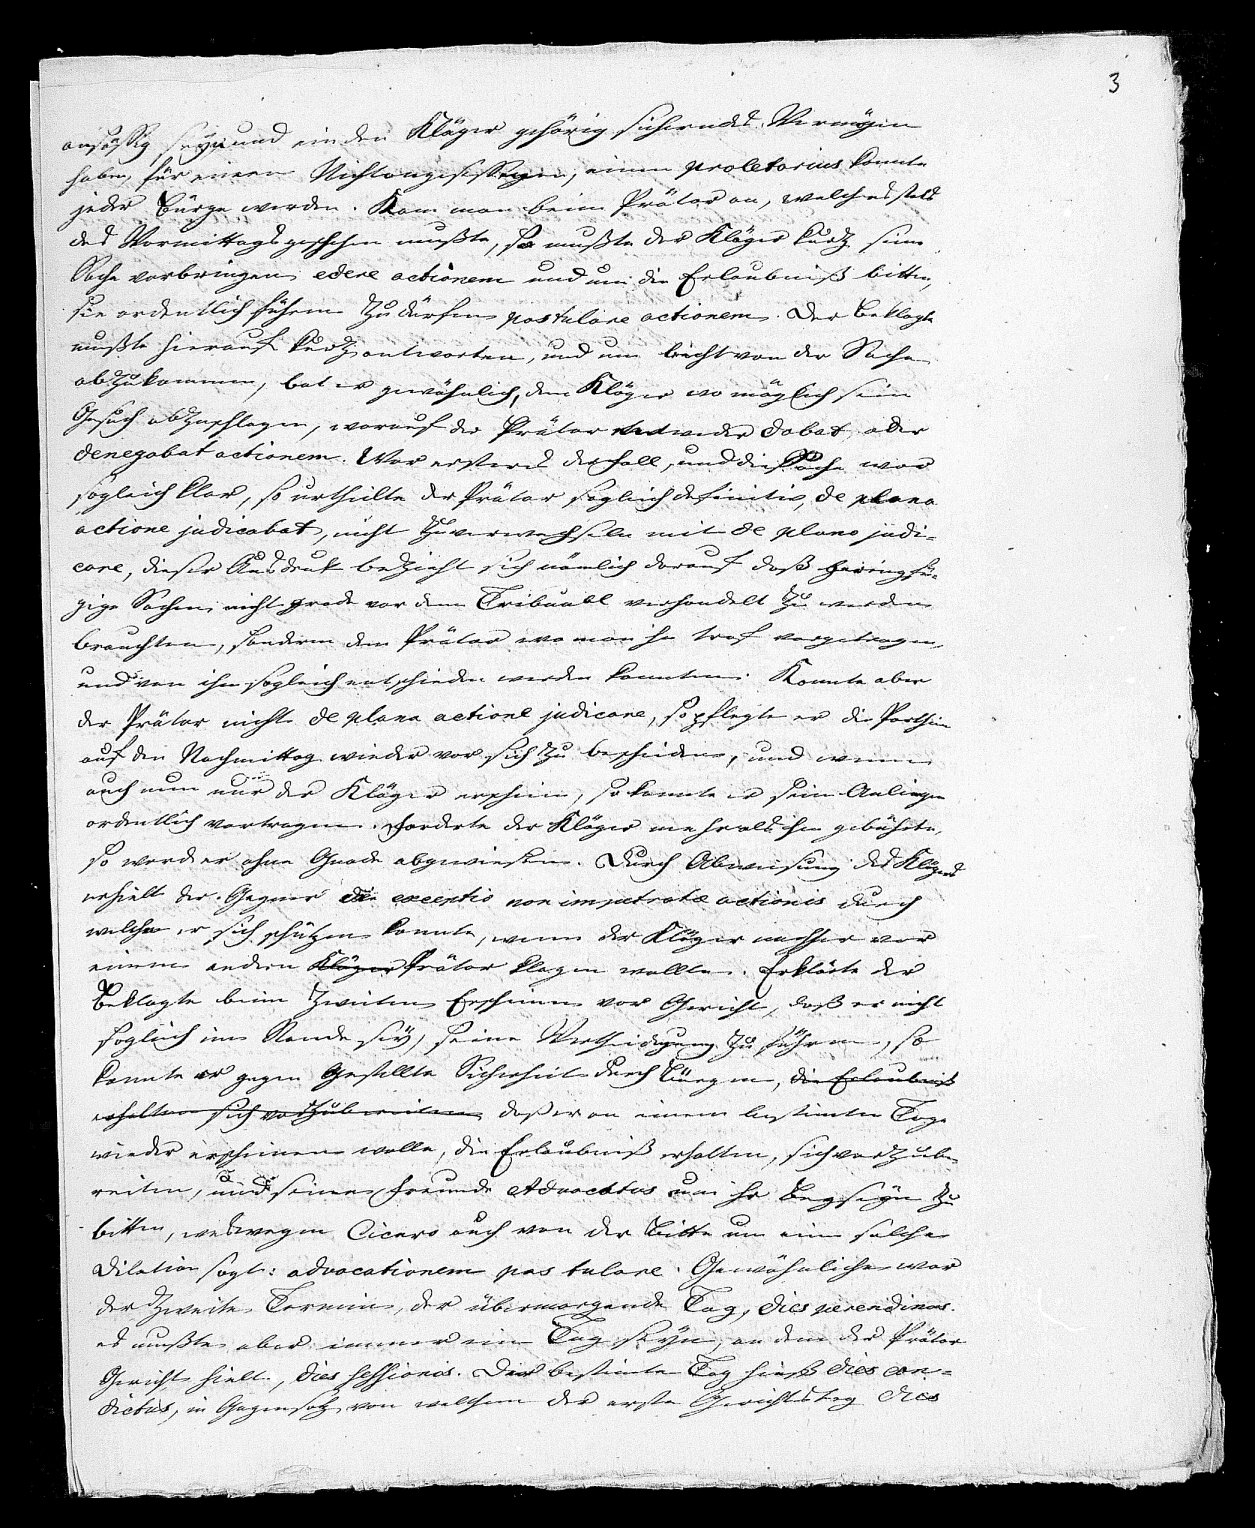 3
ansässig seyn und ein den Kläger gehörig sicherndes Vermögen
haben, für einen Nichtangesessenen, einen proletarius konnte
jeder Bürge werden. Kam man beim Prätor an, welches stets
des Vormittags geschehen mußte, so mußte der Kläger kurz seine
Sache vorbringen edere actionem und um die Erlaubniß bitten,
sie ordentlich führen zu dürfen postulare actionem. Der Beklagte
mußte hierauf kurz antworten, und um leicht von der Sache
abzukommen, bat er gewöhnlich, dem Kläger wo möglich sein
Gesuch abzuschlagen, worauf der Prätor entweder dabat oder
denegabat actionem. War ersteres der Fall, und die Sache war
sogleich klar, so urtheilte der Prätor sogleich definitiv, de plana
actione judicabat, nicht zu verwechseln mit de plano judi-
care, dieser Ausdruk bezieht sich nämlich darauf daß geringfü-
gige Sachen nicht grade vor dem Tribunal verhandelt zu werden
brauchten, sondern dem Prätor wo man ihn traf vorgetragen,
und von ihm sogleich entschieden werden konnten. Konnte aber
der Prätor nicht de plana actione judicare, so pflegte er die Parthien
auf den Nachmittag wieder vor sich zu bescheiden, und wenn
auch nun nur der Kläger erschien, so konnte er sein Anliegen
ordentlich vortragen. Forderte der Kläger mehr als ihm gebührte,
so ward er ohne Gnade abgewiesen. Durch Abweisung des Klägers
erhielt der Gegner die exceptio non impetratae actionis durch
welche er sich schützen konnte, wenn der Kläger nachher vor
einem andern Kläger Prätor klagen wollte. Erklärte der
Beklagte beim zweiten Erscheinen vor Gericht, daß er nicht
sogleich im Stande sey, seine Vertheidigung zu führen, so
konnte er gegen gestellte Sicherheit durch Bürgen, die Erlaubniß
erhalten sich vorzubereiten daß er an einem bestimten Tage
wieder erscheinen wolle, die Erlaubniß erhalten, sich vorzube-
reiten, und seinen Freunde Advocatus um ihr Beyseyn zu
bitten, weswegen Cicero auch von der Bitte um eine solche
Dilation sagt: advocationem postulare. Gewöhnlich war
der zweite Termin, der übermorgende Tag, dies perendinus.
es mußte aber immer ein Tag seyn, an dem der Prätor
Gericht hielt, dies sessionis. Der bestimte Tag hieß dies con-
dictus, im Gegensatz von welchem der erste Gerichtstag dies